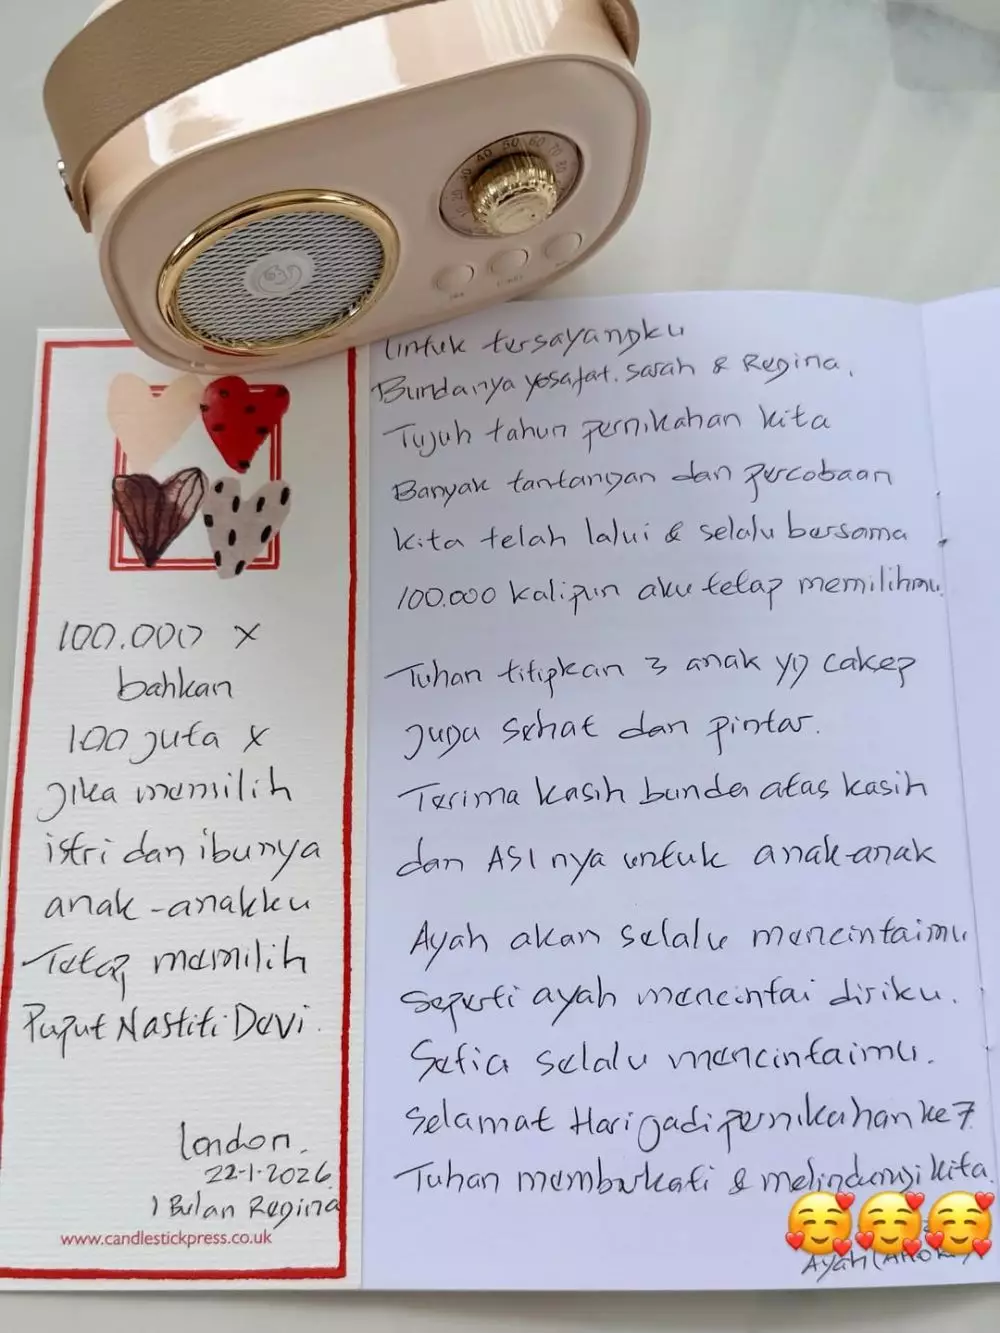 100.000 x
bahkan
100 juta x
jika memilih
istri dan ibunya
anak-anakku
Tetap memilih
Puput Nastiti Devi.
London.
22-1-2026
1 Bulan Regina
www.candlestickpress.co.uk
Untuk tersayangku
Bundanya yosafat. sarah & Regina.
Tujuh tahun pernikahan kita
Banyak tantangan dan percobaan
kita telah lalui & selalu bersama
100.000 kalipun aku tetap memilihmu.
Tuhan titipkan 3 anak yg cakep
juga sehat dan pintar.
Terima kasih bunda atas kasih
dan ASI nya untuk anak-anak
Ayah akan selalu mencintaimu
seperti ayah mencintai diriku.
Setia selalu mencintaimu.
Selamat Hari jadi pernikahan ke 7
Tuhan memberkati & melindungi kita.
Ayah